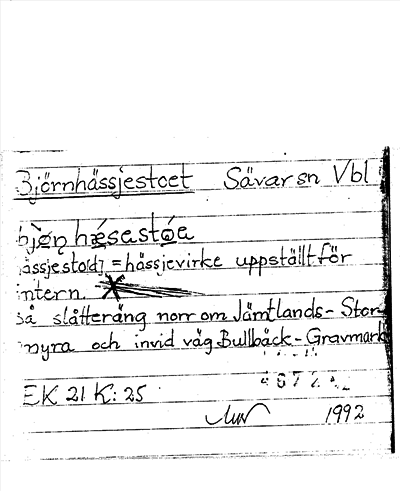 Björnhässjestoet Sävar sn Vbl
bjö̀ṇ hæsastóa
hässjesto[d] = hässjevirke uppställt för
intern.
På slåtteräng norr om Jämtlands-Stor-
myra och invid väg Bullbäck-Gravmark
EK 21 K: 25
1992